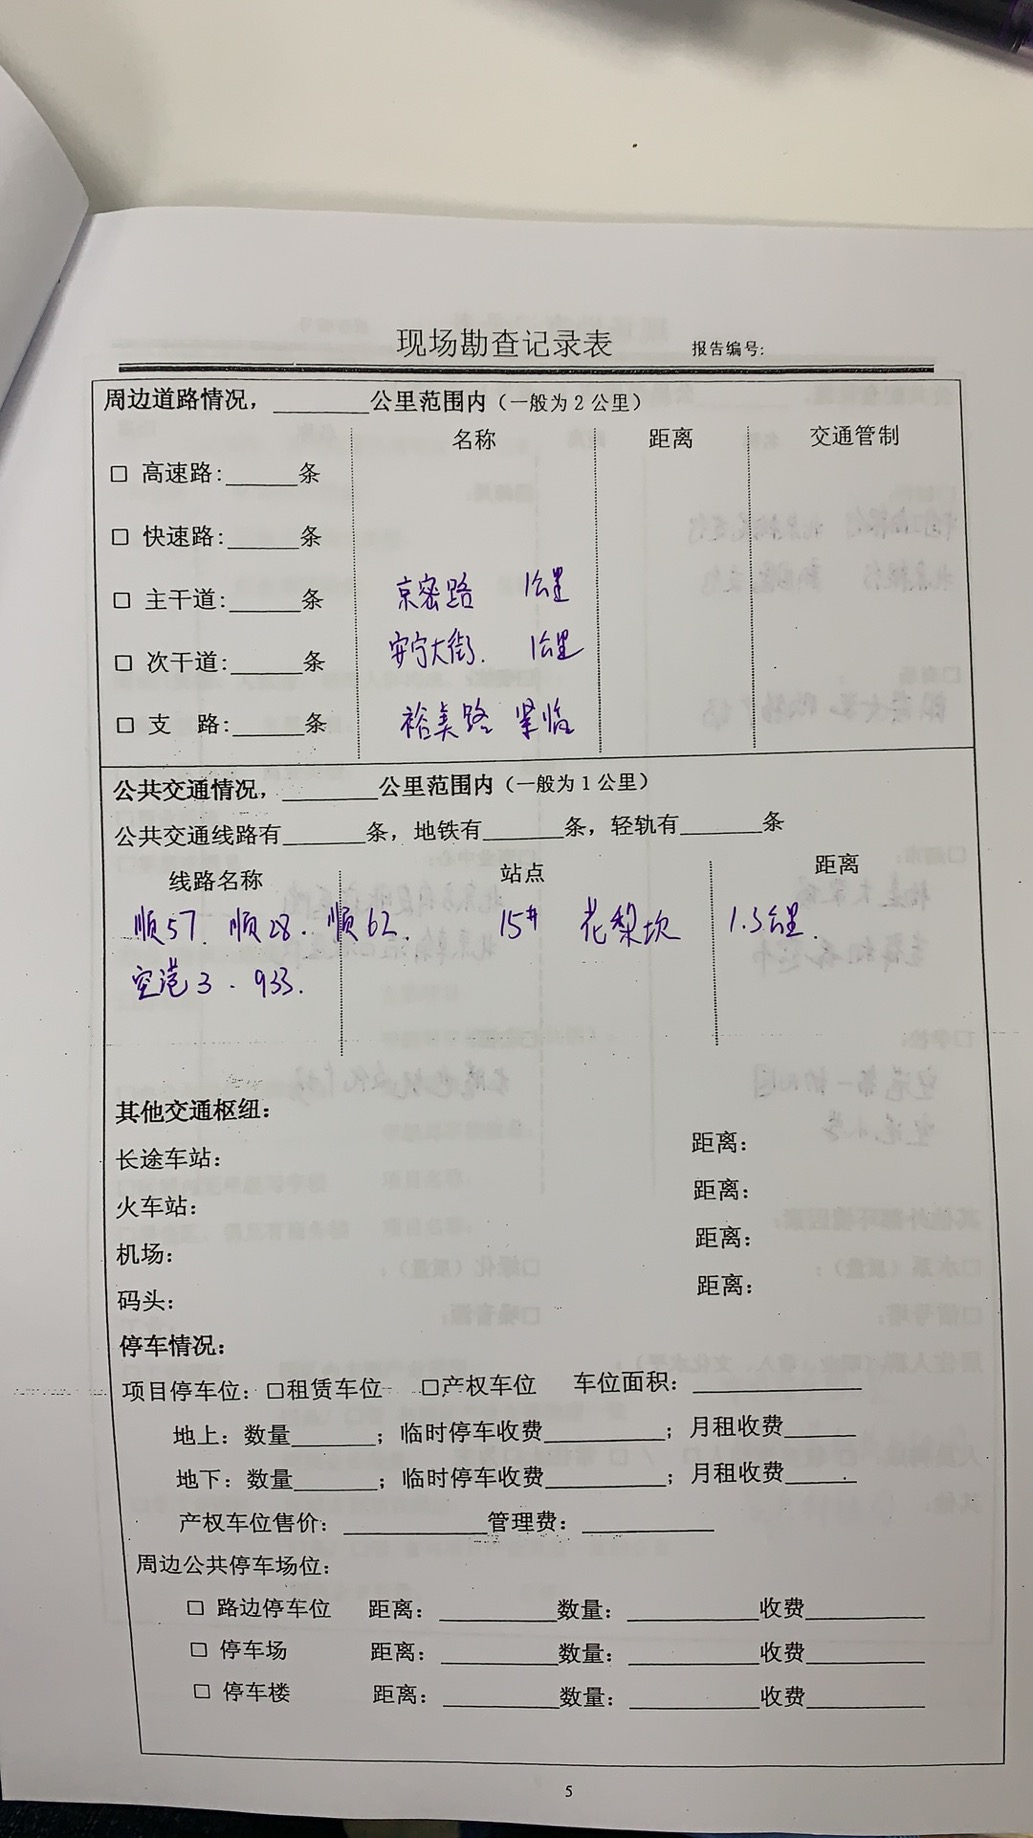 现场勘查记录表 报告编号:
周边道路情况，________公里范围内（一般为2公里）
名称 距离 交通管制
□ 高速路:______条
□ 快速路:______条
□ 主干道:______条 京密路 1公里
□ 次干道:______条 安宁大街. 1公里
□ 支 路:______条 裕美路 紧临
公共交通情况，________公里范围内（一般为1公里）
公共交通线路有_______条，地铁有_______条，轻轨有_______条
线路名称 站点 距离
顺57. 顺28. 顺62. 15# 花梨坎 1.3公里.
空港3. 933.
其他交通枢纽:
长途车站: 距离:
火车站: 距离:
机场: 距离:
码头: 距离:
停车情况:
项目停车位: □租赁车位 □产权车位 车位面积: ______________
地上: 数量_______; 临时停车收费__________; 月租收费______
地下: 数量_______; 临时停车收费__________; 月租收费______
产权车位售价: ____________管理费: ___________
周边公共停车场位:
□ 路边停车位 距离: __________数量: ___________收费__________
□ 停车场 距离: __________数量: ___________收费__________
□ 停车楼 距离: __________数量: ___________收费__________
5